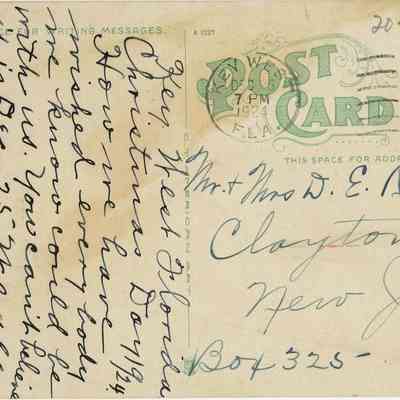 CE FOR WRITING MESSAGES.
A 1227
204
POST
CARD
KEY WEST
DEC
7 PM
1924
FLA.
THIS SPACE FOR ADDR
Key West Florida
Christmas Day 1924
How we have
wished every body
we know could be
with us. You can't believe
it is Dec. 25-
Mr. + Mrs D. E. B
Clayton
New J
Box 325-